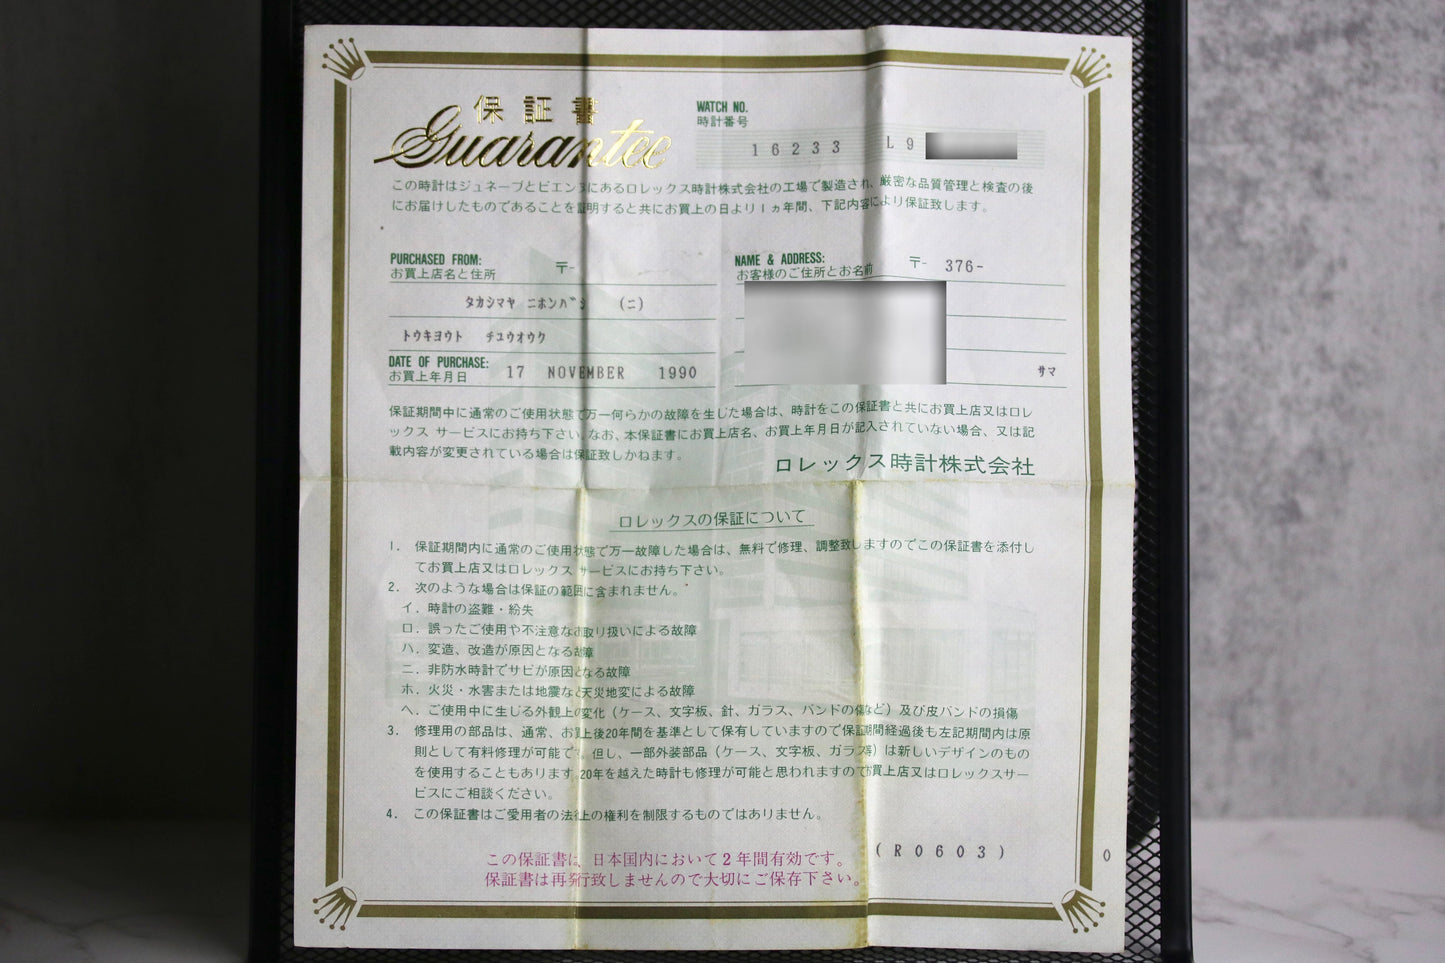 保証書
Guarantee
WATCH NO.
時計番号
16233 L9
この時計はジュネーブとビエンヌにあるロレックス時計株式会社の工場で製造され、厳密な品質管理と検査の後
にお届けしたものであることを証明すると共にお買上の日より1ヵ年間、下記内容により保証致します。
PURCHASED FROM:
お買上店名と住所 〒-
タカシマヤ ニホンバシ (ニ)
トウキヨウト チユウオウク
DATE OF PURCHASE:
お買上年月日 17 NOVEMBER 1990
NAME & ADDRESS:
お客様のご住所とお名前 〒- 376-
サマ
保証期間中に通常のご使用状態で万一何らかの故障を生じた場合は、時計をこの保証書と共にお買上店又はロレ
ックス サービスにお持ち下さい。なお、本保証書にお買上店名、お買上年月日が記入されていない場合、又は記
載内容が変更されている場合は保証致しかねます。
ロレックス時計株式会社
ロレックスの保証について
1. 保証期間内に通常のご使用状態で万一故障した場合は、無料で修理、調整致しますのでこの保証書を添付し
てお買上店又はロレックス サービスにお持ち下さい。
2. 次のような場合は保証の範囲に含まれません。
イ. 時計の盗難・紛失
ロ. 誤ったご使用や不注意なお取り扱いによる故障
ハ. 変造、改造が原因となる故障
ニ. 非防水時計でサビが原因となる故障
ホ. 火災・水害または地震など天災地変による故障
ヘ. ご使用中に生じる外観上の変化（ケース、文字板、針、ガラス、バンドの傷など）及び皮バンドの損傷
3. 修理用の部品は、通常、お買上後20年間を基準として保有していますので保証期間経過後も左記期間内は原
則として有料修理が可能です。但し、一部外装部品（ケース、文字板、ガラス等）は新しいデザインのもの
を使用することもあります。20年を越えた時計も修理が可能と思われますのでお買上店又はロレックスサー
ビスにご相談ください。
4. この保証書はご愛用者の法律上の権利を制限するものではありません。
この保証書は、日本国内において2年間有効です。
保証書は再発行致しませんので大切にご保存下さい。
(R0603)
0